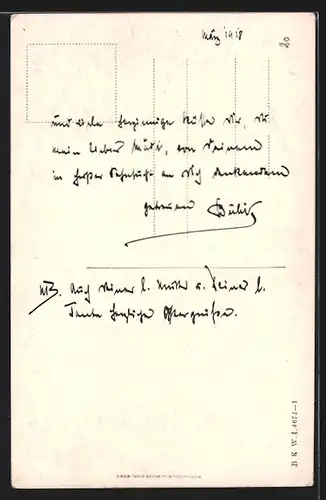 März 1918
20
und viele herzinnige Küsse Dir, Du
mein liebes Mädi, von Deinem
in heißer Sehnsucht an Dich denkenden
getreuen
NB. Auch Deiner l. Mutter u. Deiner l.
Tante herzliche Ostergrüße.
B. K. W. I. 4672—1